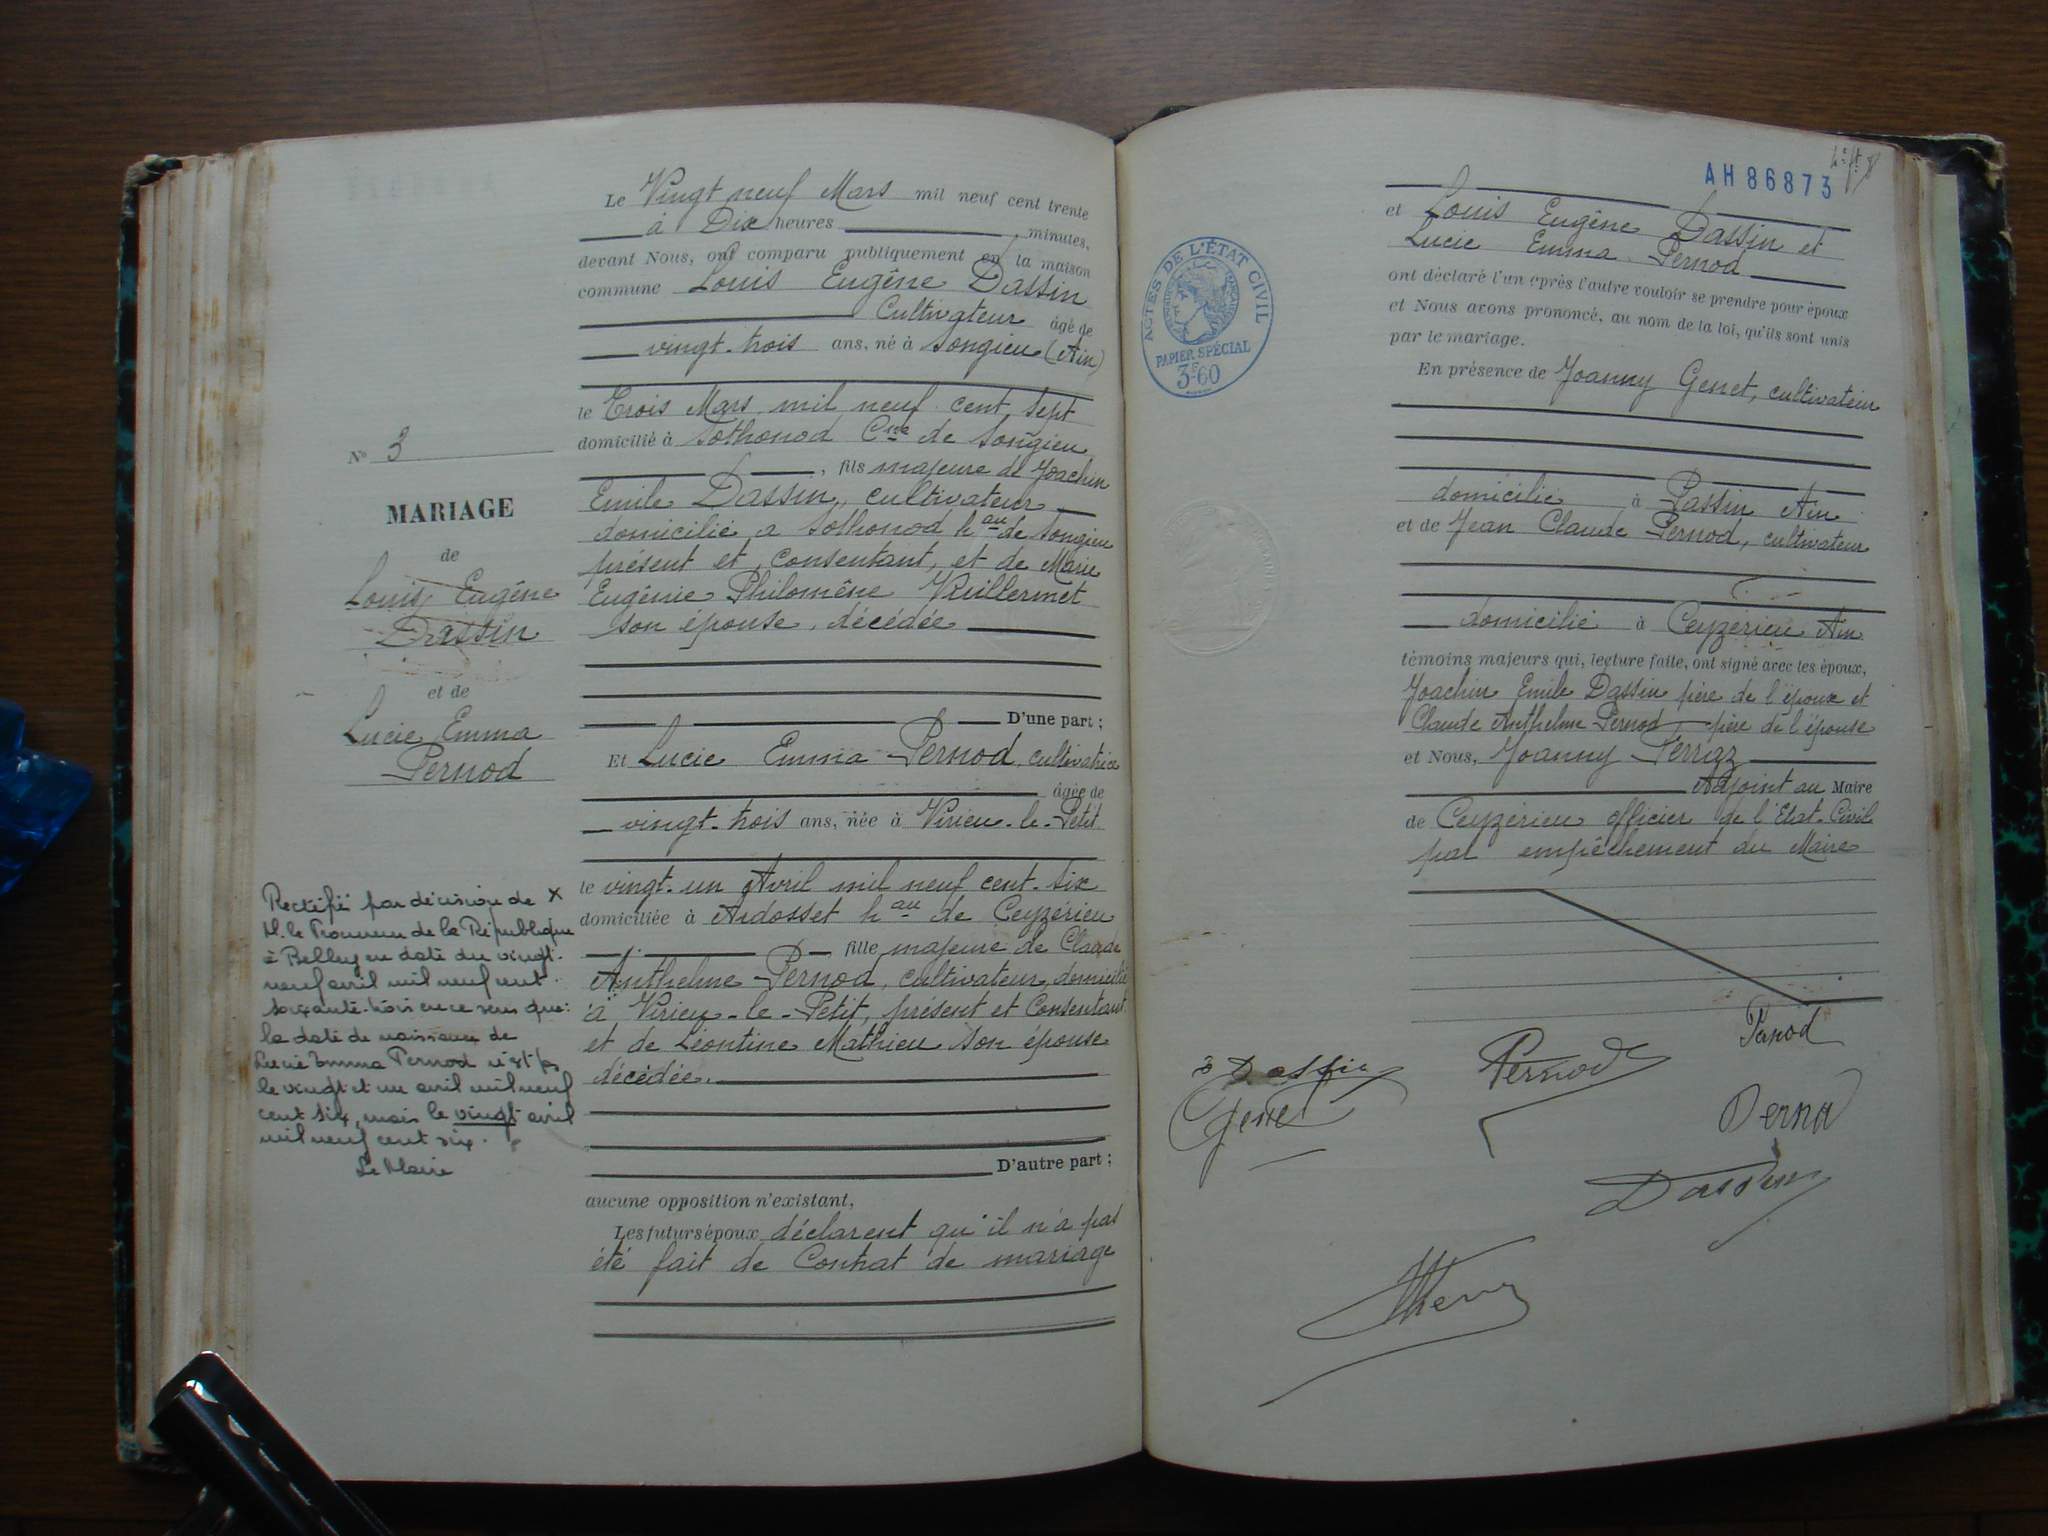 Le Vingt neuf Mars mil neuf cent trente
à Dix heures minutes,
devant Nous, ont comparu publiquement en la maison
commune Louis Eugêne Dassin
Cultivateur âgé de
vingt-trois ans, né à Songieu (Ain)
le Trois Mars mil neuf cent sept
domicilié à Sothonod Cne de Songieu
, fils majeure de Joachin
Emile Dassin, cultivateur
domicilié a Sothonod hau de Songieu
présent et consentant, et de Marie
Eugénie Philomêne Vuillermet
son épouse, décédée
D'une part ;
Et Lucie Emma Pernod, cultivatrice
âgée de
vingt-trois ans, née à Virieu-le-Petit
le vingt-un Avril mil neuf cent-six
domiciliée à Ardosset hau de Ceyzérieu
fille majeure de Claude
Anthelme Pernod, cultivateur, domicilié
à Virieu-le-Petit, présent et Consentant
et de Léontine Mathieu son épouse
décédée.
D'autre part ;
aucune opposition n'existant,
Les futurs époux déclarent qu'il n'a pas
été fait de Contrat de mariage
No 3
MARIAGE
de
Louis Eugêne
Dassin
et de
Lucie Emma
Pernod
Rectifié par décision de X
M. le Procureur de la République
à Belley en date du vingt-
neuf avril mil neuf cent
soixante-trois en ce sens que :
la date de naissance de
Lucie Emma Pernod n'est pas
le vingt et un avril mil neuf
cent six, mais le vingt avril
mil neuf cent six.
Le Maire
AH 86873
ACTES DE L'ÉTAT CIVIL
PAPIER SPÉCIAL
3F60
et Louis Eugêne Dassin et
Lucie Emma Pernod
ont déclaré l'un après l'autre vouloir se prendre pour époux
et Nous avons prononcé, au nom de la loi, qu'ils sont unis
par le mariage.
En présence de Joanny Genet, cultivateur
domicilié à Passin Ain
et de Jean Claude Pernod, cultivateur
domicilié à Ceyzérieu Ain
témoins majeurs qui, lecture faite, ont signé avec les époux,
Joachin Emile Dassin père de l'époux et
Claude Anthelme Pernod père de l'épouse
et Nous, Joanny Perraz
Adjoint au Maire
de Ceyzérieu officier de l'Etat-Civil
par empêchement du Maire
Pernod
Dassin
Pernod
Genet
Dassin